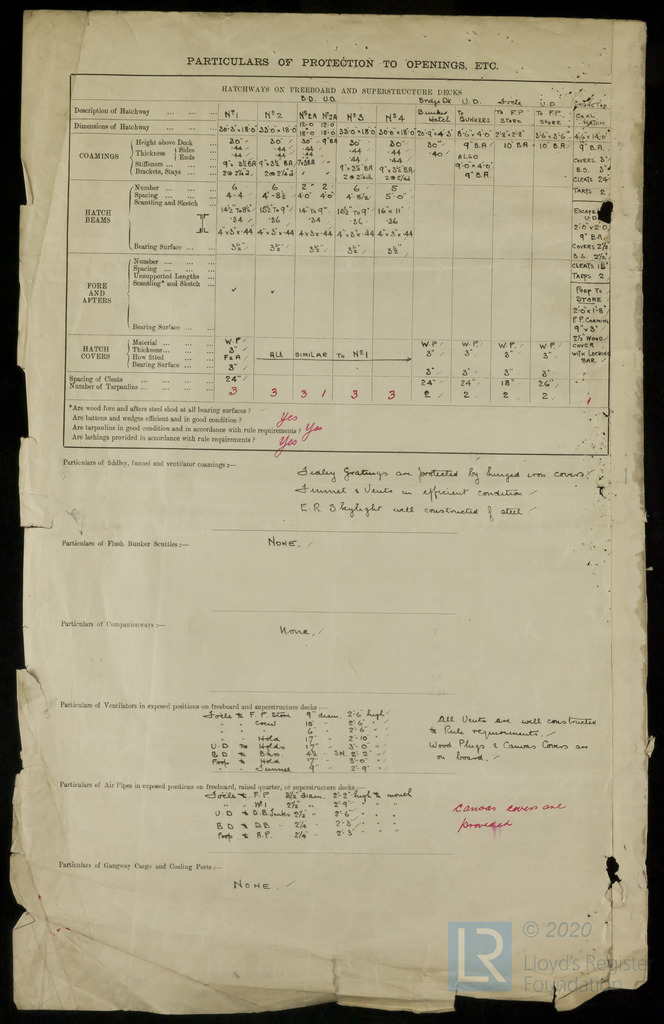 PARTICULARS OF PROTECTION TO OPENINGS, ETC.
HATCHWAYS ON FREEBOARD AND SUPERSTRUCTURE DECKS
B.D. U.D. Bridge Dk U.D. Focle U.D. Casing Top
Description of Hatchway Nº1 Nº2 Nº2A Nº2A Nº3 Nº4 Bunker Hatch To Bunkers To F.P STORE To F.P. STORE COAL HATCH
Dimensions of Hatchway 30'3"x18'0 33'0"x18'0 12'0 18'0 12'0 18'0 33'0"x18'0 30'0"x18'0 8'6"x4'0" 2'8"x2'8" 3'6"x3'6" 4'6"x14'0"
COAMINGS
Height above Deck 30" 30" 30" 9" BA 30" 30" 30" 9" B.A 10" B.A 10" B.A 9" B.A.
Thickness Sides .44 .44 .44 .44 .44 .40 ALSO COVERS 3"
Ends .44 .44 .44 .44 .44 9'0"x4'0" B.S. 3"
Stiffeners 9"x3½ BA 9"x3½ BA 7x3BA 9"x3½ BA 9"x3½ BA 9" B.A CLEATS 24"
Brackets, Stays TARPS 2
HATCH BEAMS
Number 6 6 2 2 6 5
Spacing 4-4 4'-8½ 4'0" 4'0" 4'-8½ 5-0"
Scantling and Sketch ESCAPE U.D.
14½" To 8½" 15½ To 9" 14 To 9" 15½ To 9" 16" x 11" 2'0"x2'0
.34 .36 .34 .36 .36 9" B.A.
4"x3"x.44 4"x3"x.44 4x3x.44 4"x3"x.44 4"x3"x.44 COVERS 2½
Bearing Surface 3½" 3½" 3½" 3½" 3½" B.S. 2½"
FORE AND AFTERS
Number CLEATS 18"
Spacing TARPS 2
Unsupported Lengths
Scantling* and Sketch POOP TO STORE
2'0"x1'8"
F.P. COAMING
9" x 3"
Bearing Surface 2½ WOOD COVER
HATCH COVERS
Material W.P. W.P. W.P. W.P. W.P.
Thickness 3" 3" 3" 3" 3" WITH LOCKING BAR.
How fitted F&A ALL SIMILAR TO Nº1
Bearing Surface 3" 3" 3" 3" 3"
Spacing of Cleats 24" 24" 24" 18" 26"
Number of Tarpaulins 3 3 3 1 3 3 2 2 2 2 1
*Are wood fore and afters steel shod at all bearing surfaces?
Are battens and wedges efficient and in good condition? Yes
Are tarpaulins in good condition and in accordance with rule requirements? Yes
Are lashings provided in accordance with rule requirements? Yes
Particulars of fiddley, funnel and ventilator coamings:— Fidley Gratings are protected by hinged iron covers.
Funnel & Vents in efficient condition
E.R Skylight well constructed of steel
Particulars of Flush Bunker Scuttles:— NONE.
Particulars of Companionways:— None.
Particulars of Ventilators in exposed positions on freeboard and superstructure decks
Focle to F.P. Store 9" diam. 2'-6" high
Crew 10" 2'6"
6 2'6"
Hold 17" 2'-10"
U.D to Holds 17" 3'-0"
B D to 4½ S.N. 2'-2"
Poop to Hold 17" 3'-0"
Tunnel 9" 2'-9"
All Vents are well constructed
to Rule requirements.
Wood Plugs & Canvas Covers are
on board.
Particulars of Air Pipes in exposed positions on freeboard, raised quarter, or superstructure decks
Focle to F.P 3½" diam. 2'-2" high to mouth
" " Nº1 2½" " 2'9" " "
U.D to D.B Tanks 2½" 2'6"
B D to D B 2¼ 2'-3"
Poop to A.P. 2¼" 2'-3"
Canvas covers are
provided
Particulars of Gangway Cargo and Coaling Ports:—
NONE.
LR © 2020
Lloyd's Register
Foundation